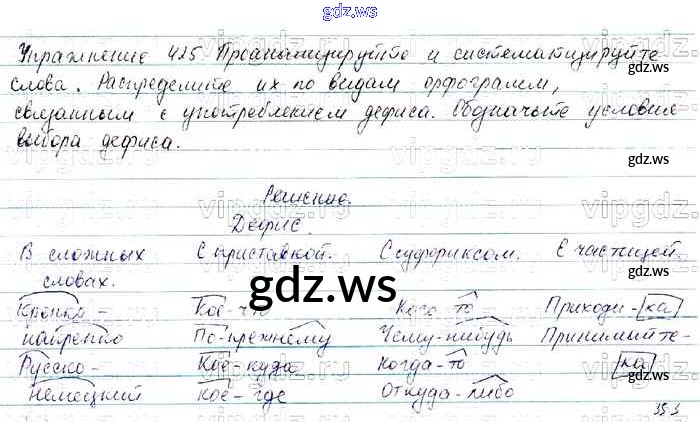 gdz.ws
Упражнение 425 Проанализируйте и систематизируйте
слова. Распределите их по видам орфограмм,
связанным с употреблением дефиса. Обозначьте условие
выбора дефиса.
Решение.
Дефис.
В сложных С приставкой. С суффиксом. С частицей.
словах.
gdz.ws
Крепко- Кое-что Кого-то Приходи-ка
накрепко По-прежнему Чему-нибудь Примите-
Русско- Кое-куда Когда-то ка
немецкий кое-где Откуда-либо
353
gdz.ws
gdz.ws
gdz.ws